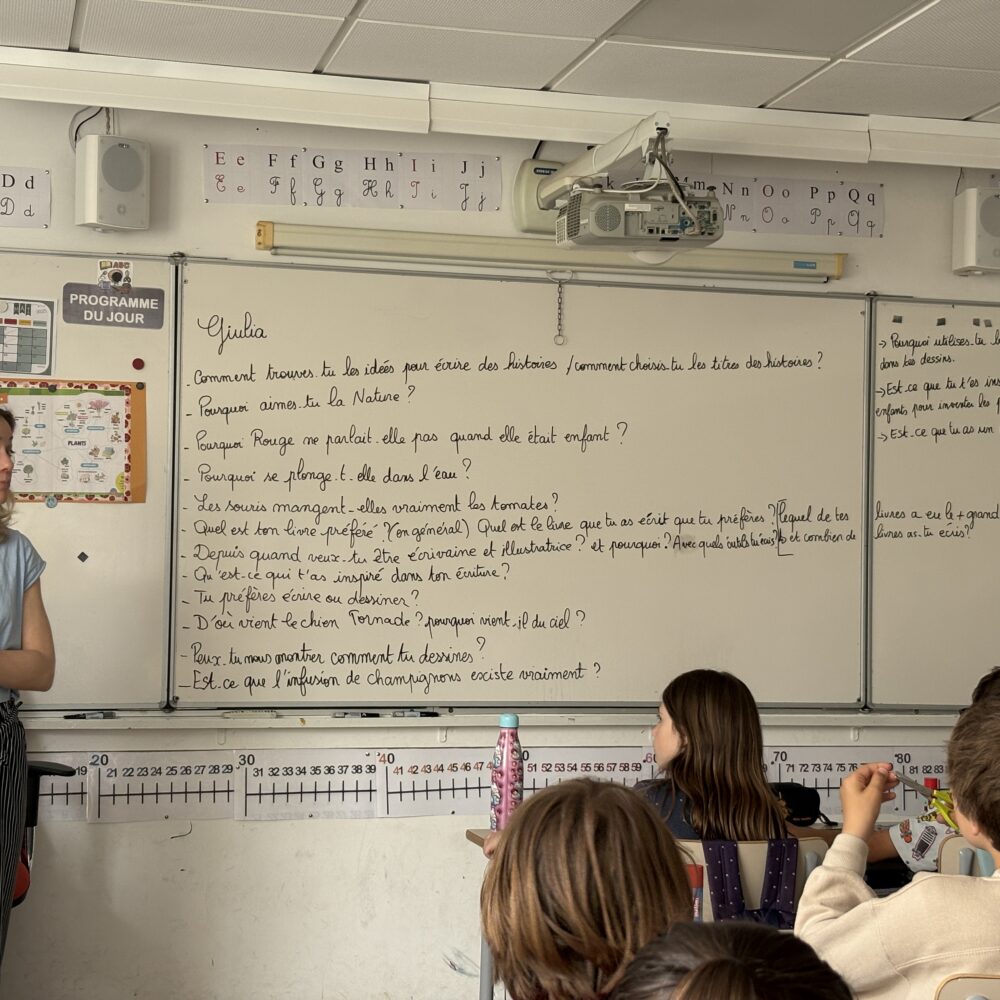 E e F f G g H h I i J j
E e F f G g H h I i J j
D d
D d
k
M m N n O o P p Q q
N n O o P p Q q
ABC
PROGRAMME
DU JOUR
PLANTS
Giulia
- Comment trouves-tu les idées pour écrire des histoires / comment choisis-tu les titres des histoires ?
- Pourquoi aimes-tu la Nature ?
- Pourquoi Rouge ne parlait-elle pas quand elle était enfant ?
- Pourquoi se plonge-t-elle dans l'eau ?
- Les souris mangent-elles vraiment les tomates ?
- Quel est ton livre préféré ? (en général) Quel est le livre que tu as écrit que tu préfères ? lequel de tes
- Depuis quand veux-tu être écrivaine et illustratrice ? et pourquoi ? Avec quels outils tu écris ? et combien de
- Qu'est-ce qui t'as inspiré dans ton écriture ?
- Tu préfères écrire ou dessiner ?
- D'où vient le chien Tornade ? pourquoi vient-il du ciel ?
- Peux-tu nous montrer comment tu dessines ?
- Est-ce que l'infusion de champignons existe vraiment ?
→ Pourquoi utilises-tu
dans tes dessins.
→ Est-ce que tu t'es
enfants pour inventer les
→ Est-ce que tu as un
livres a eu le + grand
livres as-tu écris ?
20 30 40 60 70 80
19 21 22 23 24 25 26 27 28 29 31 32 33 34 35 36 37 38 39 41 42 43 44 45 46 47 48 49 51 52 53 54 55 56 57 58 59 71 72 73 74 75 76 81 82 83